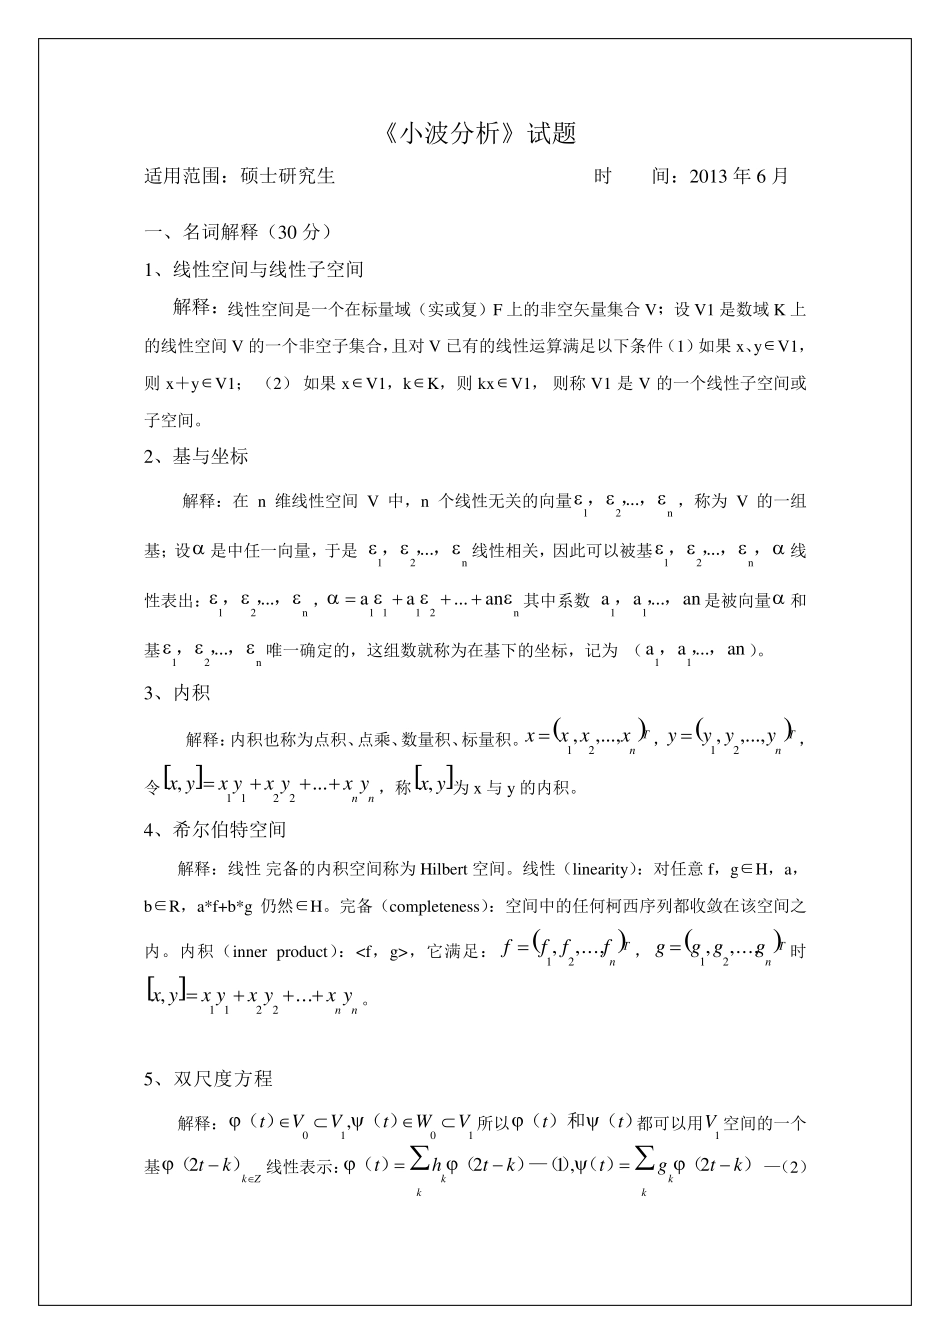 《小波分析》试题
适用范围：硕士研究生 时 间：2013 年 6 月
一、名词解释（30 分）
1、线性空间与线性子空间
解释：线性空间是一个在标量域（实或复）F 上的非空矢量集合 V；设 V1 是数域 K 上
的线性空间 V 的一个非空子集合，且对 V 已有的线性运算满足以下条件（1）如果 x、y∈V1，
则 x＋y∈V1； （2） 如果 x∈V1，k∈K，则 kx∈V1， 则称 V1 是 V 的一个线性子空间或
子空间。
2、基与坐标
解释：在 n 维线性空间 V 中，n 个线性无关的向量ε₁，ε₂,...，εₙ，称为 V 的一组
基；设α 是中任一向量，于是 ε₁，ε₂,...，εₙ 线性相关，因此可以被基ε₁，ε₂,...，εₙ，α 线
性表出：ε₁，ε₂,...，εₙ，α = a₁ε₁ + a₁ε₂ + ... + anεₙ 其中系数 a₁，a₁,...，an 是被向量α 和
基ε₁，ε₂,...，εₙ 唯一确定的，这组数就称为在基下的坐标，记为 （a₁，a₁,...，an）。
3、内积
解释：内积也称为点积、点乘、数量积、标量积。x = (x₁, x₂,..., xₙ)ᵀ，y = (y₁, y₂,..., yₙ)ᵀ，
令 [x, y] = x₁y₁ + x₂y₂ + ... + xₙyₙ，称 [x, y] 为 x 与 y 的内积。
4、希尔伯特空间
解释：线性 完备的内积空间称为 Hilbert 空间。线性（linearity）：对任意 f，g∈H，a，
b∈R，a*f+b*g 仍然∈H。完备（completeness）：空间中的任何柯西序列都收敛在该空间之
内。内积（inner product）：<f，g>，它满足：f = (f₁, f₂,…, fₙ)ᵀ，g = (g₁, g₂,…, gₙ)ᵀ 时
[x, y] = x₁y₁ + x₂y₂ + … + xₙyₙ。
5、双尺度方程
解释：φ（t）∈V₀ ⊂ V₁,ψ（t）∈W₀ ⊂ V₁ 所以φ（t）和ψ（t）都可以用V₁ 空间的一个
基φ（2t − k）k∈Z 线性表示：φ（t）= ∑ₖ hₖφ（2t − k）—（1）,ψ（t）= ∑ₖ gₖφ（2t − k）—（2）